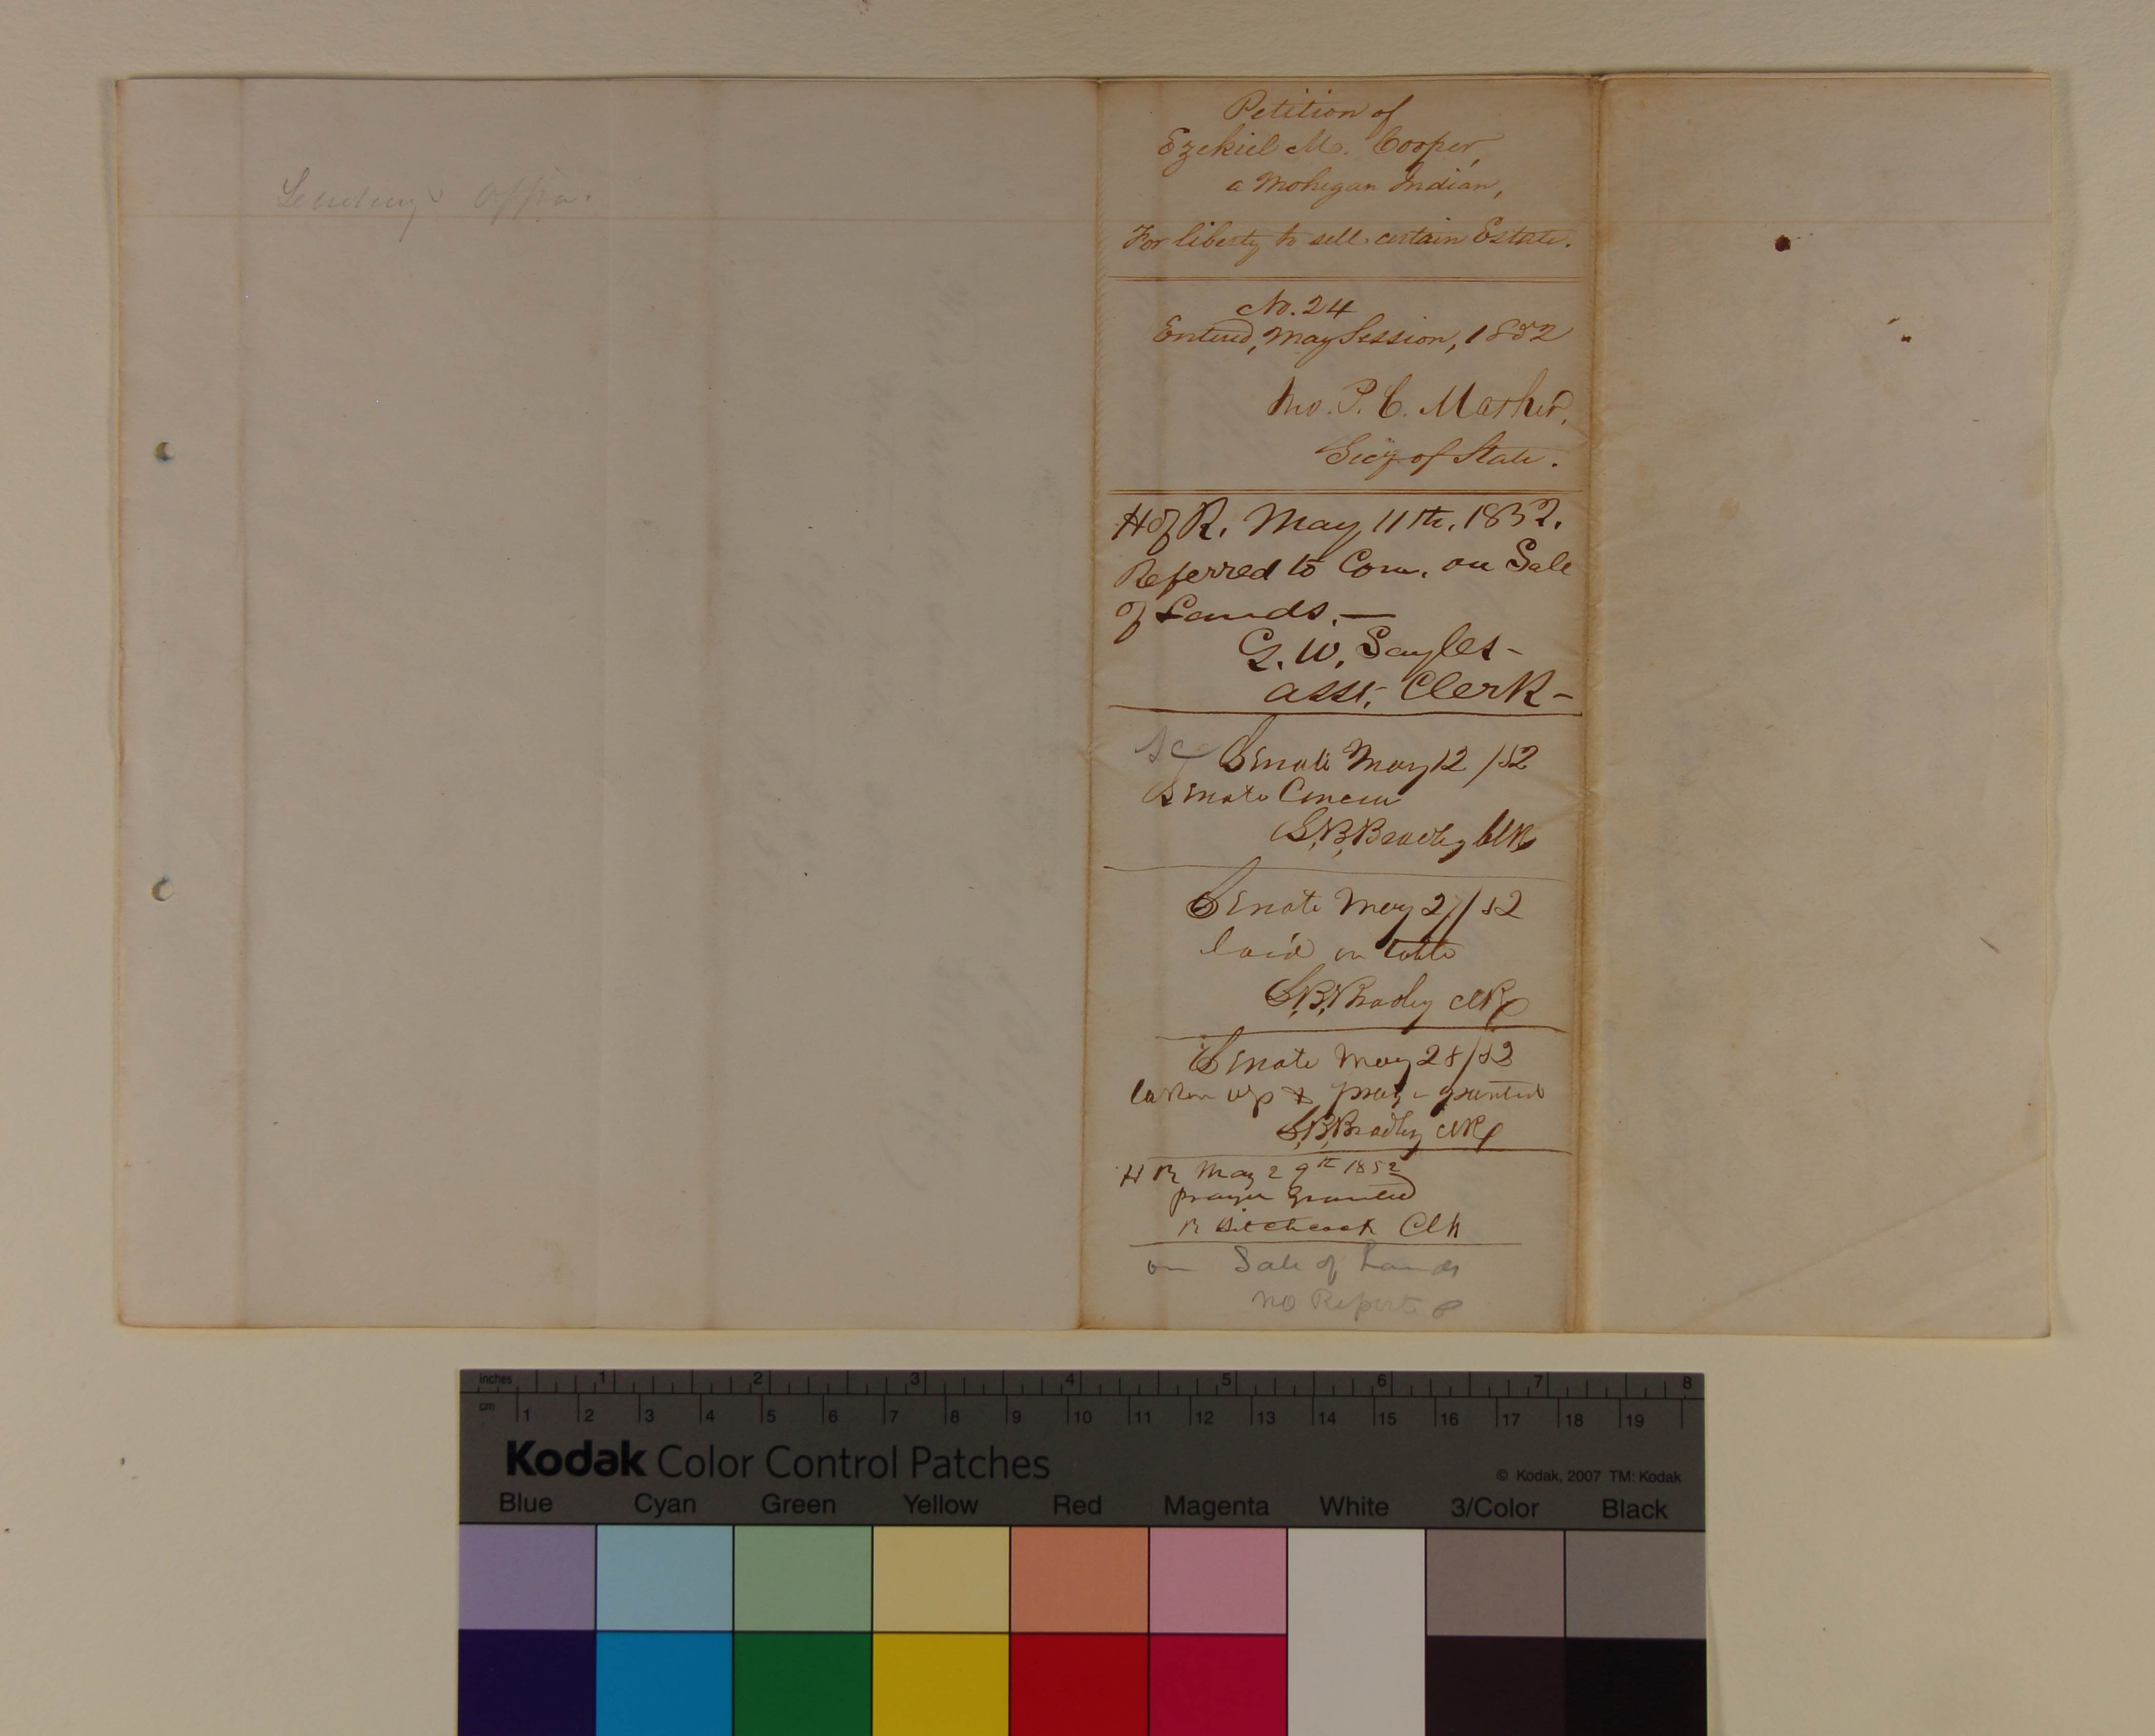 Petition of
Ezekiel M. Cooper,
a Mohegan Indian,
For liberty to sell certain Estate.
No. 24
Entered, May Session, 1852
Jno. P. C. Mather,
Secy of State.
H of R. May 11th, 1852.
Referred to Com. on Sale
of Lands. —
G. W. Sayles -
asst. Clerk -
Senate May 12 /52
Senate Concur
S,B,Bradley Clk
Senate May 27/52
laid on table
S,B,Bradley Clk
Senate May 28/52
taken up & granted
S,B,Bradley Clk
H R May 29th 1852
prayer Granted
R Hitchcock Clk
on Sale of Lands
no Report
inches 1 2 3 4 5 6 7 8
cm 1 2 3 4 5 6 7 8 9 10 11 12 13 14 15 16 17 18 19
Kodak Color Control Patches
© Kodak, 2007 TM: Kodak
Blue Cyan Green Yellow Red Magenta White 3/Color Black